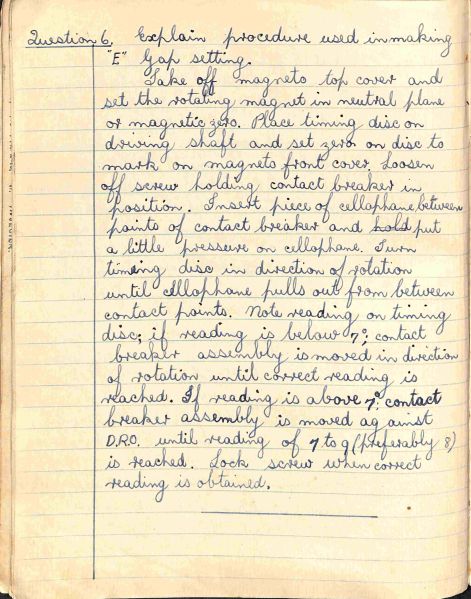 Question 6. Explain procedure used in making
"E" Gap setting.
Take off magneto top cover and
set the rotating magnet in neutral plane
or magnetic zero. Place timing disc on
driving shaft and set zero on disc to
mark on magneto front cover. Loosen
off screw holding contact breaker in
position. Insert piece of cellophane between
points of contact breaker and hold put
a little pressure on cellophane. Turn
timing disc in direction of rotation
until cellophane pulls out from between
contact points. Note reading on timing
disc; if reading is below 7°; contact
breaker assembly is moved in direction
of rotation until correct reading is
reached. If reading is above 7°; contact
breaker assembly is moved against
D.R.O. until reading of 7 to 9 (preferably 8)
is reached. Lock screw when correct
reading is obtained.